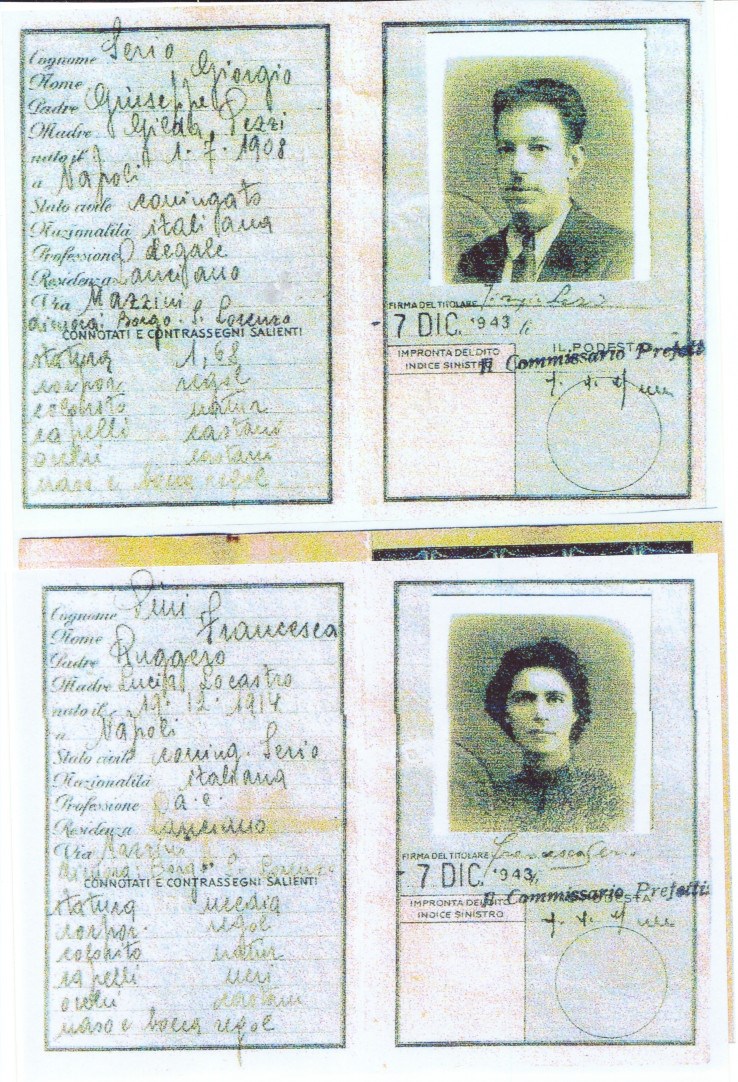 Cognome Serio
Nome Giorgio
Padre Giuseppe
Madre Gilda Pezzi
nato il 1.7.1908
a Napoli
Stato civile coniugato
Nazionalità italiana
Professione legale
Residenza Lanciano
Via Mazzini
dimora: Borgo S. Lorenzo
CONNOTATI E CONTRASSEGNI SALIENTI
statura 1,68
corpor. regol
colorito natur
capelli castani
occhi castani
naso e bocca regol
FIRMA DEL TITOLARE
7 DIC. 1943
IL PODESTÀ
IMPRONTA DEL DITO
INDICE SINISTRO
Il Commissario Prefetti
Cognome
Nome Francesca
Padre Ruggero
Madre Lucia Locastro
nato il 19.12.1914
a Napoli
Stato civile coniug. Serio
Nazionalità italiana
Professione a.c.
Residenza Lanciano
Via Mazzini
dimora: Borgo S. Lorenzo
CONNOTATI E CONTRASSEGNI SALIENTI
statura media
corpor. regol
colorito natur
capelli neri
occhi castani
naso e bocca regol
FIRMA DEL TITOLARE Francesca
7 DIC. 1943
Il Commissario Prefettiz
IMPRONTA DEL DITO
INDICE SINISTRO